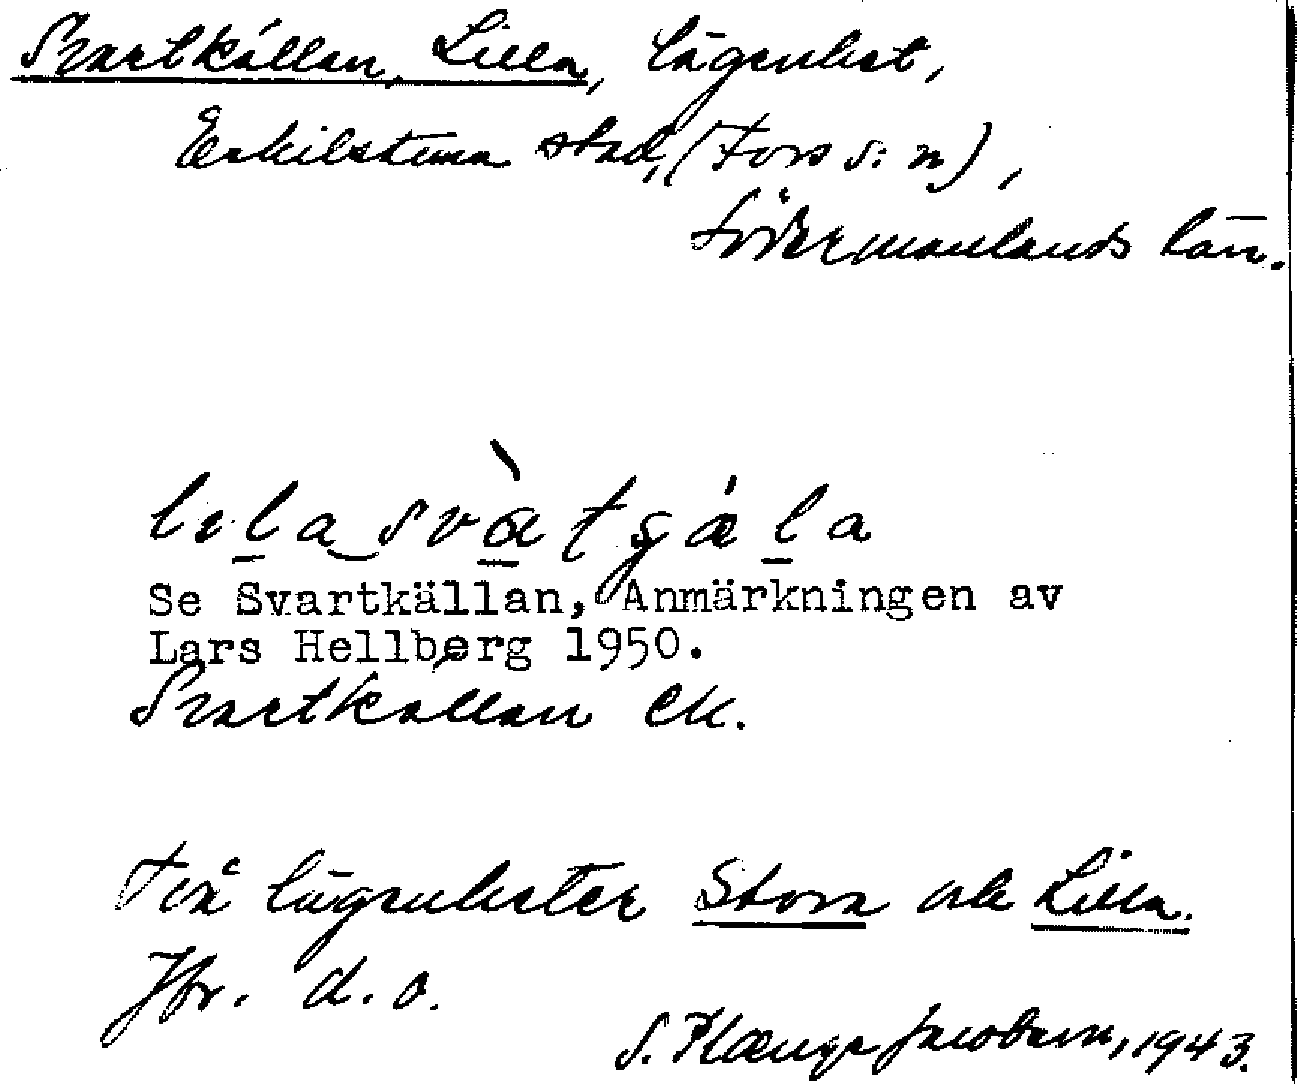 Svartkällan, Lilla, lägenhet,
Eskilstuna stad, (Fors s:n),
Södermanlands län.
lilasvàtgǽla
Se Svartkällan, Anmärkningen av
Lars Hellberg 1950.
Svartkällan EK.
Två lägenheter Stora och Lilla.
Jfr. d. o.
S. Jacobson, 1943.